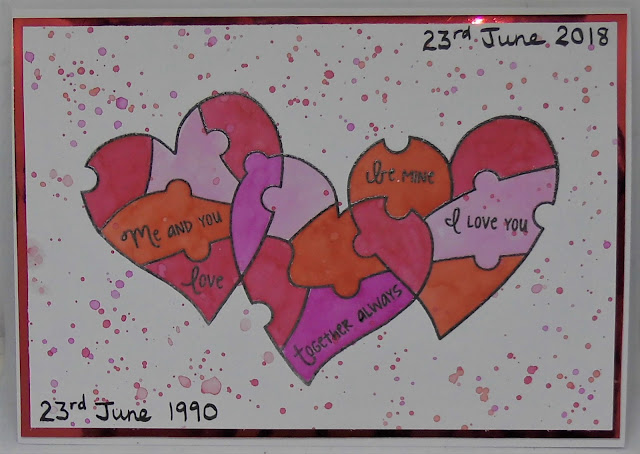 23rd June 2018
Be MINE
Me AND YOU
I LOVE YOU
love
together always
23rd June 1990